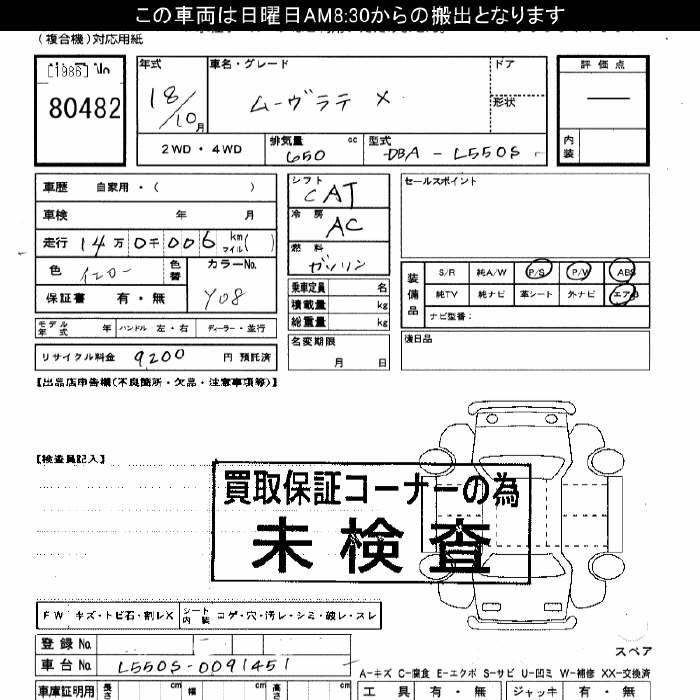 この車両は日曜日AM8:30からの搬出となります
(複合機)対応用紙
[1986] No
80482
年式
18/10月
車名・グレード
ムーヴラテ X
ドア
形状
評価点
内装
2WD・4WD
排気量 650 cc
型式 DBA-L550S
車歴 自家用・( )
車検 年 月
走行 14万0千006 km マイル( )
色 イエロー
色替
カラーNo.
Y08
保証書 有・無
モデル年式 年 ハンドル 左・右 ディーラー・並行
リサイクル料金 9200 円 預託済
シフト CAT
冷房 AC
燃料 ガソリン
乗車定員 名
積載量 kg
総重量 kg
名変期限
月 日
セールスポイント
装備品
S/R 純A/W P/S P/W ABS
純TV 純ナビ 革シート 外ナビ エアB
ナビ型番:
後日品
【出品店申告欄(不良箇所・欠品・注意事項等)】
【検査員記入】
買取保証コーナーの為
未検査
FW キズ・トビ石・割レX
シート内装 コゲ・穴・汚レ・シミ・破レ・スレ
登録No.
車台No. L550S-0091451
スペア
A-キズ C-腐食 E-エクボ S-サビ U-凹ミ W-補修 XX-交換済
車庫証明用 長さ cm 幅 cm 高さ cm
工具 有・無 ジャッキ 有・無